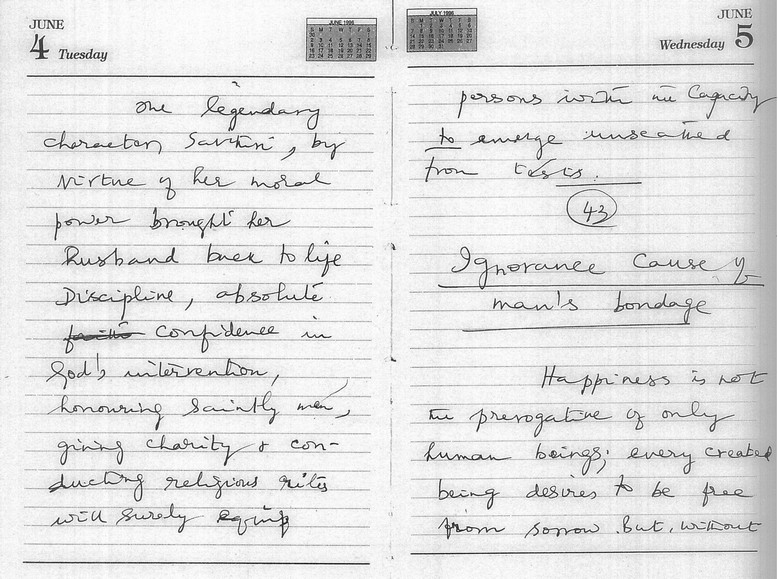 JUNE
4 Tuesday
JUNE 1996
One legendary
character, Savitri, by
virtue of her moral
power brought her
husband back to life
Discipline, absolute
faith confidence in
God's intervention,
honouring saintly men,
giving charity & con-
ducting religious rites
will surely equip
JULY 1996
JUNE
Wednesday 5
persons with the capacity
to emerge unscathed
from tests.
43
Ignorance Cause of
man's bondage
Happiness is not
the prerogative of only
human beings; every created
being desires to be free
from sorrow. But, without